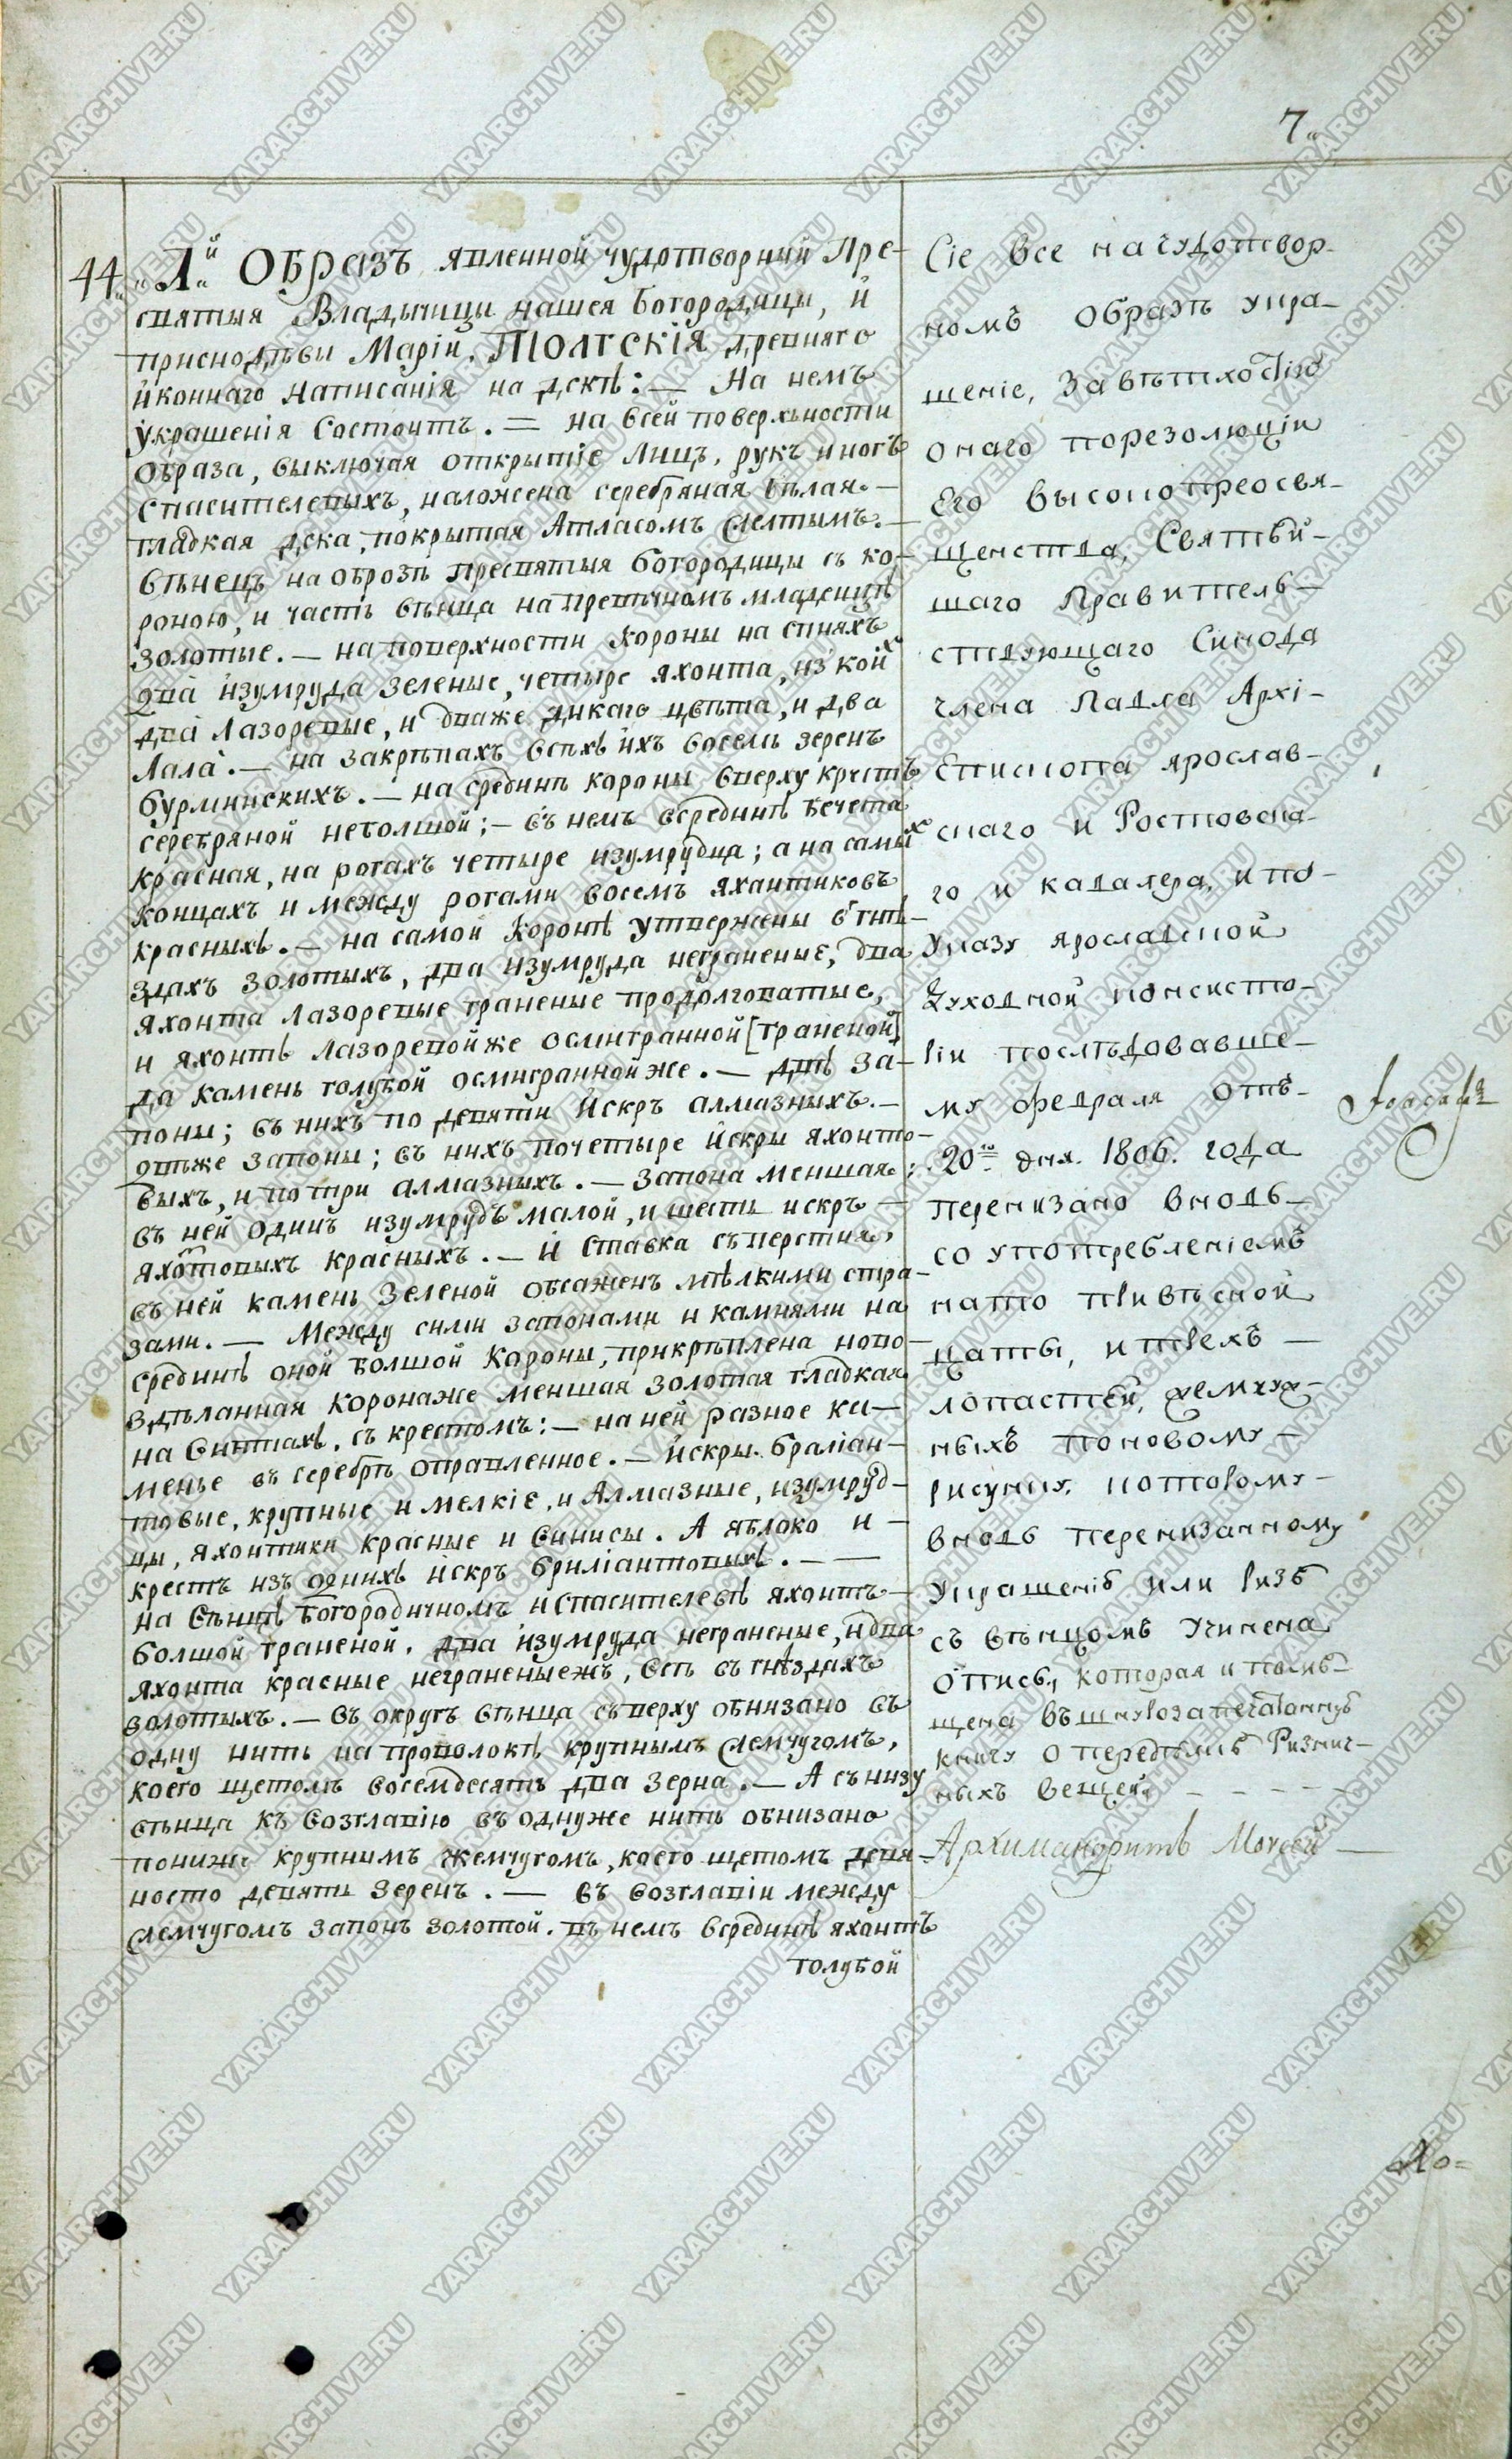 7.
44. „1.й Образъ явленной чудотворный Пре-
святыя Владычицы нашея Богородицы, и
приснодѣвы Маріи, Толгскія древняго
иконнаго написанія на дскѣ: — На немъ
украшенія Состоитъ. = на всей поверхьности
образа, выключая открытіе Лицъ, рукъ и ногъ
Спасителевыхъ, наложена серебряная бѣлая. —
гладкая дска, покрытая Атласомъ Желтымъ. —
Вѣнецъ на образѣ пресвятыя богородицы съ ко-
роною, и часть вѣнца на превѣчномъ младенцѣ
золотые. — на поверхности короны на спняхъ
два изумруда зеленые, четыре яхонта, из коихъ
два Лазоревые, и дваже дикаго цвѣта, и два
Лала. — на закрѣпахъ всѣхъ ихъ восемь зеренъ
бурминскихъ. — на срединѣ короны вверху крестъ
серебряной неболшой; — въ немъ всрединѣ вечета
красная, на рогахъ четыре изумрудца; а на самыхъ
концахъ и между рогами восемъ яхантиковъ
красныхъ. — на самой коронѣ утвержены в гнѣ-
здахъ золотыхъ, два изумруда неграненые, два
яхонта лазоревые граненые продолговатые,
и яхонтъ лазоревой же осмигранной [граненой]
да камень голубой осмигранной же. — двѣ за-
поны; въ нихъ по девяти искръ алмазныхъ. —
двѣже запоны; въ нихъ почетыре искры яхонто-
выхъ, и потри алмазныхъ. — Запона меншая;
въ ней одинъ изумрудъ малой, и шесть искръ —
яхонтовыхъ красныхъ. — И ставка съперстня,
въ ней камень зеленой обсаженъ мѣлкими стра-
зами. — Между сими запонами и камнями на
срединѣ оной болшой Короны, прикрѣплена ново-
здѣланная коронаже меншая золотая гладкая
на винтахъ, съ крестомъ: — на ней разное ка-
менье въ серебрѣ оправленное. — Искры бриліан-
товые, крупные и мелкіе, и Алмазные, изумруд-
цы, яхонтики красные и синисы. А яблоко и —
крестъ изъ однихъ искръ бриліантовыхъ. — —
на Вѣнцѣ Богородичномъ и Спасителевѣ яхонтъ —
болшой граненой, два изумруда неграненые, и два
яхонта красные неграненыежъ, всѣ въ гнѣздахъ
золотыхъ. — въ округъ вѣнца съверху обнизано въ
одну нить на проволокѣ крупнымъ Жемчугомъ,
коего щетомъ восемдесятъ два зерна. — А сънизу
вѣнца къ возглавію въ однуже нить обнизано
пониже крупнымъ жемчугомъ, коего щетомъ девя-
носто девять зеренъ. — въ возглавіи между
жемчугомъ запонъ золотой. въ немъ всрединѣ яхонтъ
голубой
Сіе все на чудотвор-
номъ образѣ укра-
шеніе, За вѣтхостію
онаго порезолюціи
Его высокопреосвя-
щенства, Святѣй-
шаго Правитель-
ствующаго Синода
члена Павла Архі-
епископа ярослав-
скаго и Ростовска-
го и кавалера, и по-
Указу ярославской
Духовной консисто-
ріи послѣдовавше-
му февраля отъ-
20го дня. 1806. года
перенизано вновь —
со употребленіемъ
на то привѣсной
цаты, и трехъ —
лопастей, жемчуж-
ныхъ поновому —
рисунку, и по торому —
вновь перенизанному
Украшенію или ризѣ
съ вѣнцомъ учинена
опись, которая и помѣ-
щена въ шнурозапечатанную
книгу о передѣлкѣ Ризнич-
ныхъ вещей. — — —
Архимандритъ Моисей —
До=